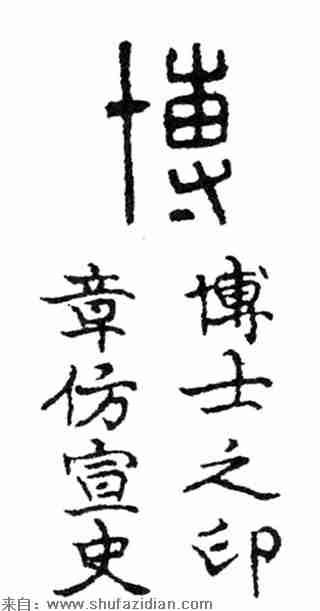 博
博士之印
章仿宣史
来自：www.shufazidian.com